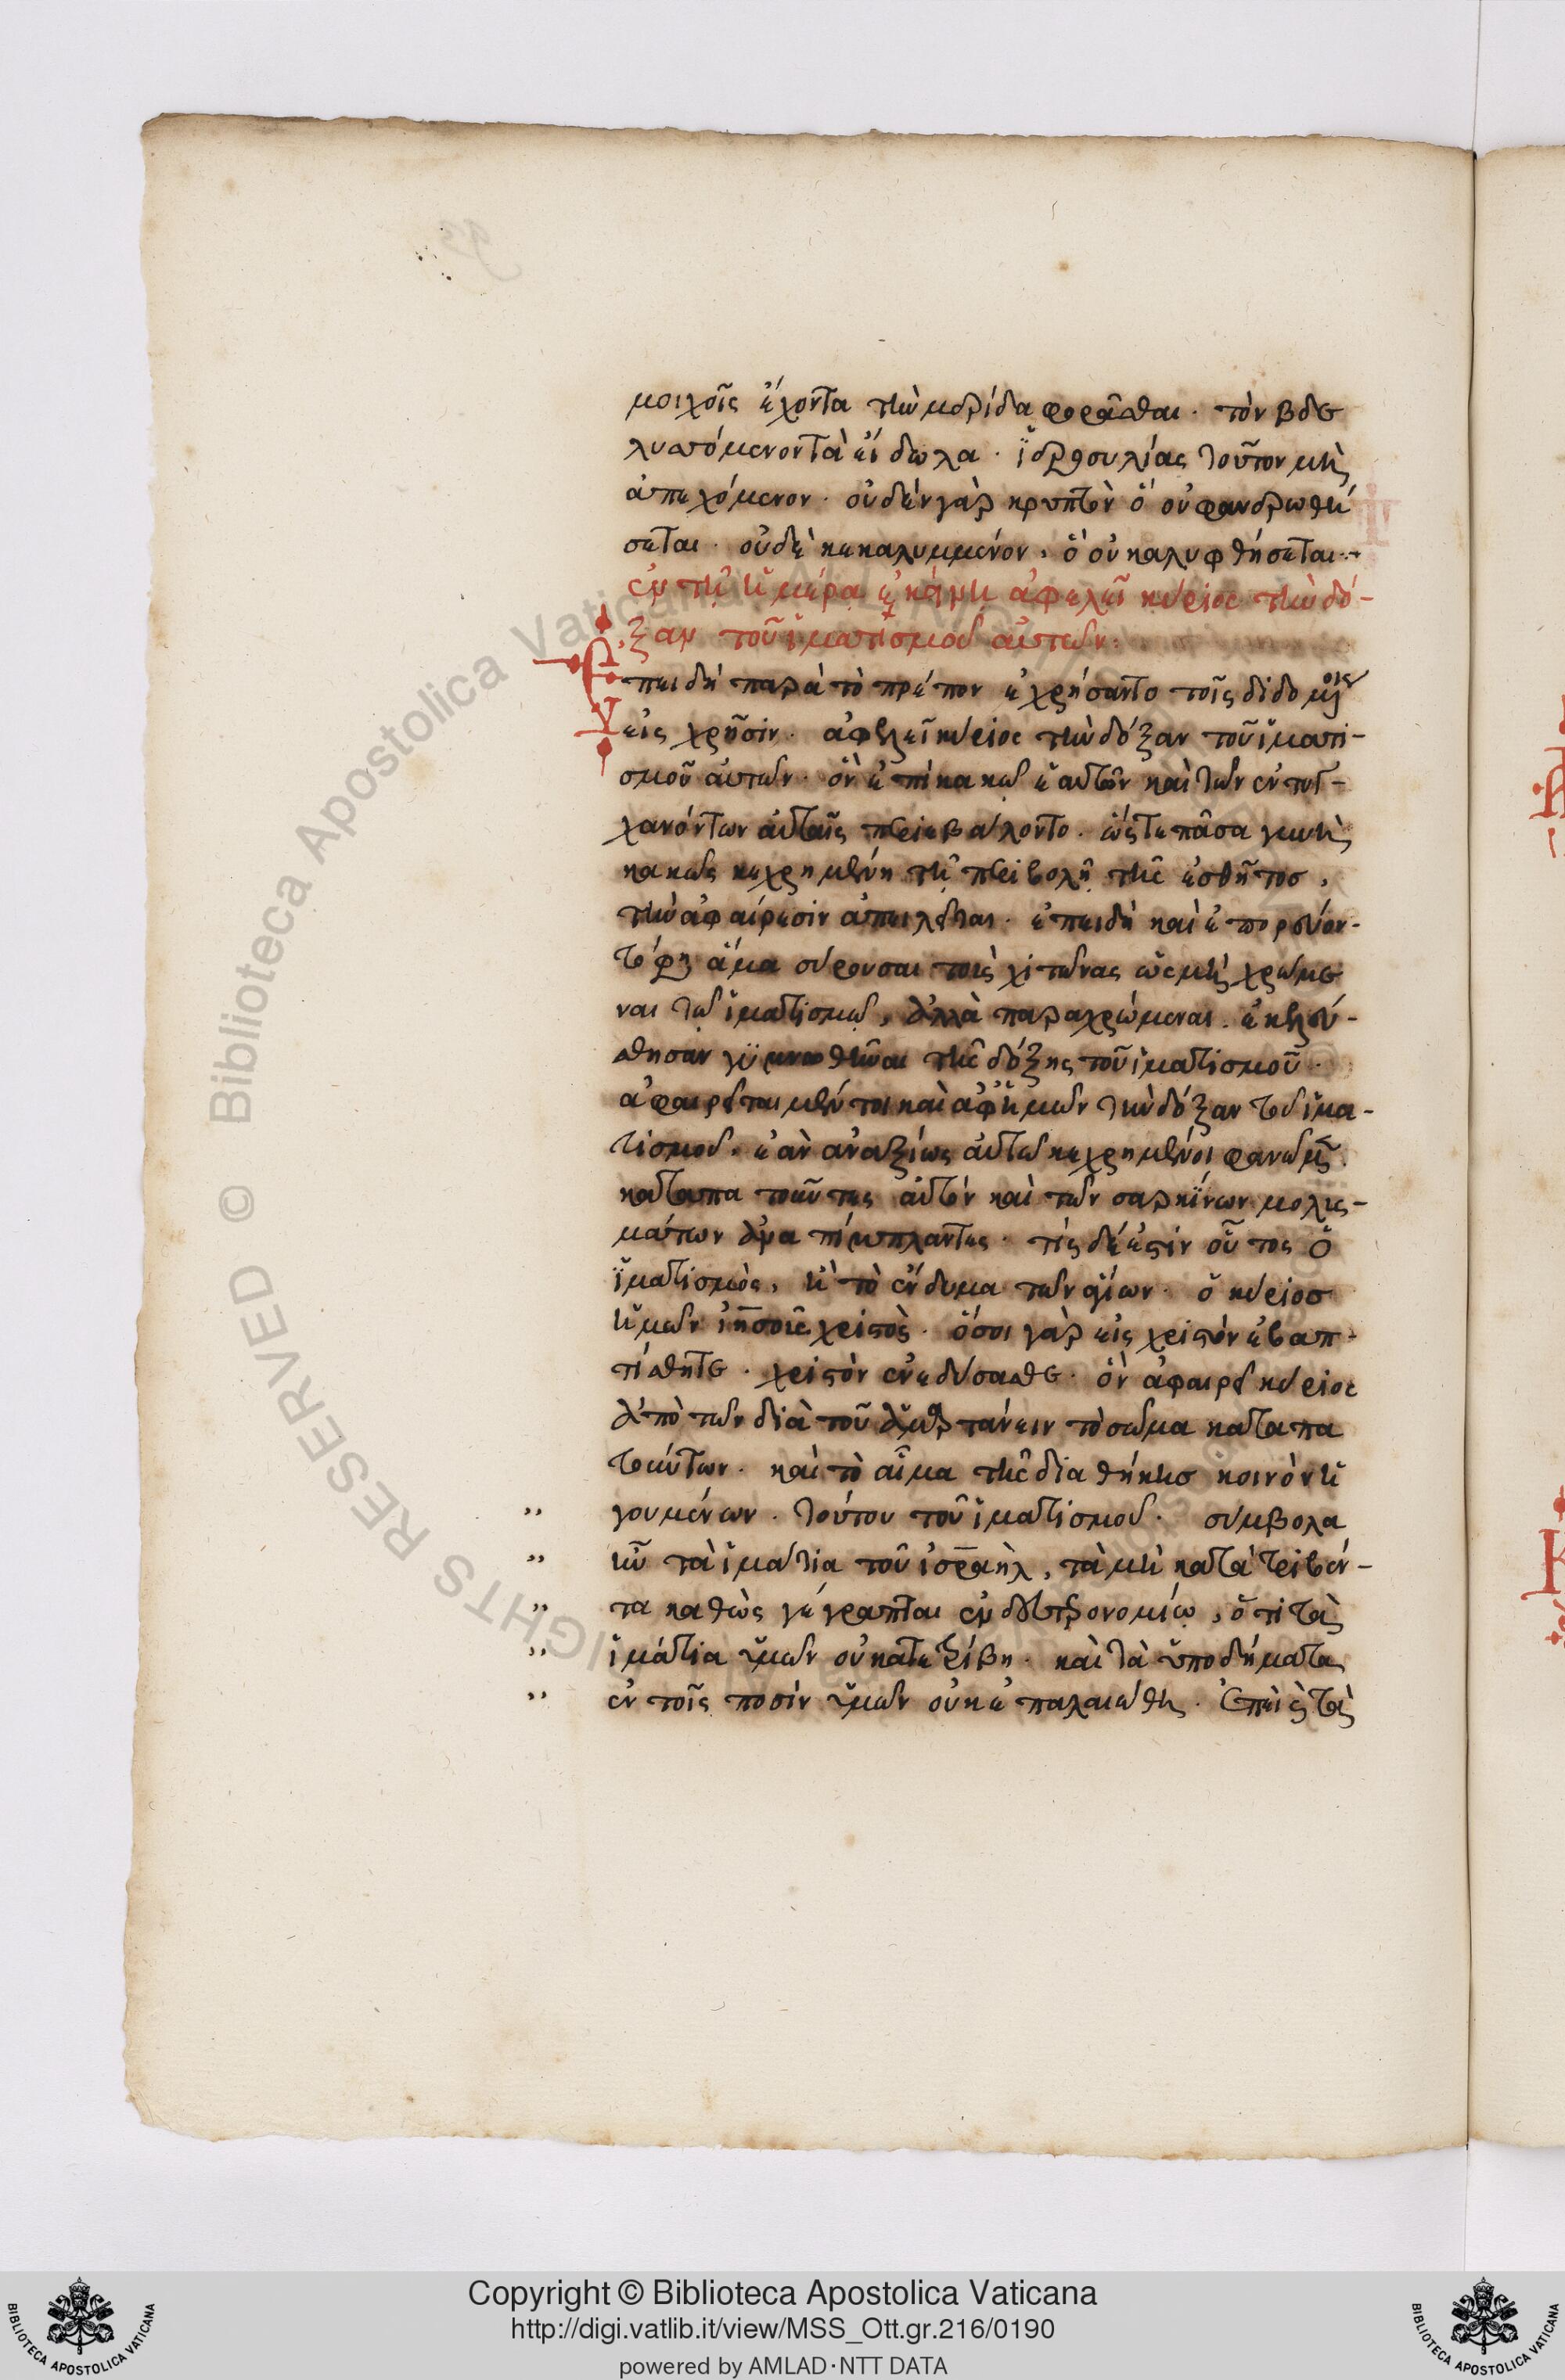 μοιχοῖς ἔχοντα τὴν μερίδα φορᾶσθαι. τὸν βδε
λυσσόμενον τὰ εἴδωλα. ἱεροσυλίας τοῦτον μὴ
ἀπεχόμενον. οὐδὲν γὰρ κρυπτὸν ὃ οὐ φανερωθή
σεται. οὐδὲ κεκαλυμμένον, ὃ οὐ καλυφθήσεται.
ἐν τῇ ἡμέρα ἐκείνη ἀφελεῖ κύριος τὴν δό-
ξαν τοῦ ἱματισμοῦ αὐτῶν.
Ἐπειδὴ παρὰ τὸ πρέπον ἐχρήσαντο τοῖς διδομένοις
εἰς χρῆσιν. ἀφελεῖ κύριος τὴν δόξαν τοῦ ἱματι-
σμοῦ αὐτῶν. ὃν ἐπὶ κακῶ ἑαυτῶν καὶ τῶν ἐντυγ-
χανόντων αὐταῖς περιεβάλοντο. ὥστε πᾶσα γυνὴ
κακῶς κεχρημένη τῇ περιβολῇ τῆς ἐσθῆτος,
τὴν ἀφαίρεσιν ἀπειλεῖται. ἐπειδὴ καὶ ἐπορεύον-
το φησὶ ἅμα σύρουσαι τοὺς χιτῶνας ὡς μὴ χρώμε
ναι τῶ ἱματισμῶ, ἀλλὰ παραχρώμεναι. ἐκελεύ-
σθησαν γυμνωθῆναι τῆς δόξης τοῦ ἱματισμοῦ.
ἀφαιρεῖται μέντοι καὶ ἀφ' ἡμῶν τὴν δόξαν τοῦ ἱμα-
τισμοῦ, ἐὰν ἀναξίως αὐτῶ κεχρημένοι φανῶμεν.
καταπατοῦντες αὐτὸν καὶ τῶν σαρκίνων μολυσ-
μάτων ἀναπίμπλαντες. τίς δέ ἐστιν οὗτος ὁ
ἱματισμὸς, ἢ τὸ ἔνδυμα τῶν ἁγίων. ὁ κύριος
ἡμῶν ἰησοῦς χριστὸς. ὅσοι γὰρ εἰς χριστὸν ἐβαπ-
τίσθητε. χριστὸν ἐνεδύσασθε. ὃν ἀφαιρεῖ κύριος
ἀπὸ τῶν διὰ τοῦ ἁμαρτάνειν τὸ σῶμα καταπα
τούντων. καὶ τὸ αἷμα τῆς διαθήκης κοινὸν ἡ
,, γουμένων. τούτου τοῦ ἱματισμοῦ. σύμβολα
,, ἦν τὰ ἱμάτια τοῦ ἰσραηλ, τὰ μὴ κατατριβέν-
,, τα καθὼς γέγραπται ἐν δευτερονομίω, ὅτι τὰ
,, ἱμάτια ὑμῶν οὐ κατετρίβη. καὶ τὰ ὑποδήματα
,, ἐν τοῖς ποσὶν ὑμῶν οὐκ ἐπαλαιώθη. Ἐπεὶ καὶ τὰ
Copyright © Biblioteca Apostolica Vaticana
http://digi.vatlib.it/view/MSS_Ott.gr.216/0190
powered by AMLAD·NTT DATA